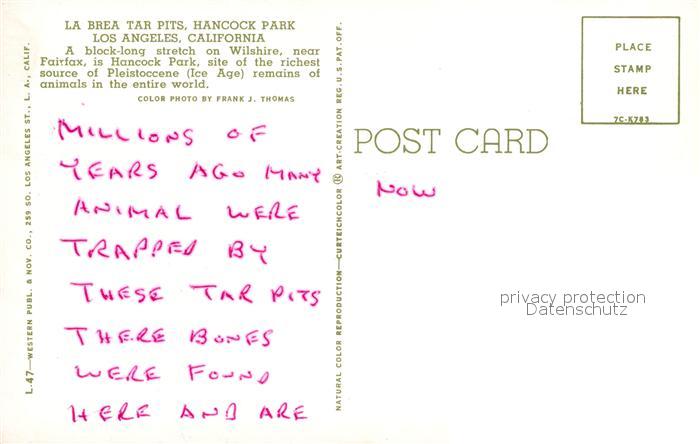 LA BREA TAR PITS, HANCOCK PARK
LOS ANGELES, CALIFORNIA
A block-long stretch on Wilshire, near
Fairfax, is Hancock Park, site of the richest
source of Pleistoccene (Ice Age) remains of
animals in the entire world.
COLOR PHOTO BY FRANK J. THOMAS
MILLIONS OF
YEARS AGO MANY
ANIMAL WERE
TRAPPED BY
THESE TAR PITS
THERE BONES
WERE FOUND
HERE AND ARE
L.47—WESTERN PUBL. & NOV. CO., 259 SO. LOS ANGELES ST., L. A., CALIF.
NATURAL COLOR REPRODUCTION—CURTEICHCOLOR ® ART-CREATION REG. U.S. PAT. OFF.
POST CARD
NOW
PLACE
STAMP
HERE
7C-K783
privacy protection
Datenschutz